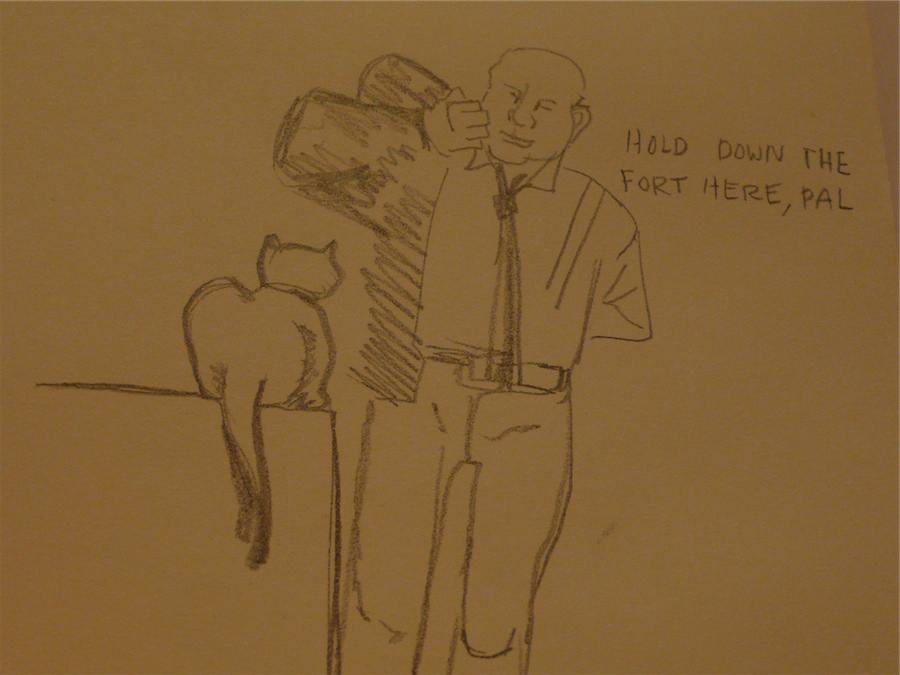 HOLD DOWN THE
FORT HERE, PAL